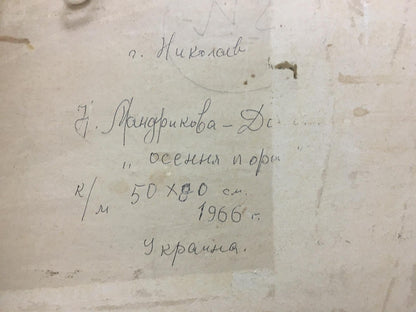 г. Николаев
Мандрикова-
„ осення пора
к/м 50 х 80 см.
1966 г.
Украина.